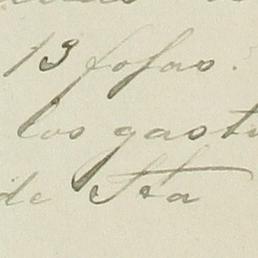 13 fojas.
los gast
de Sta